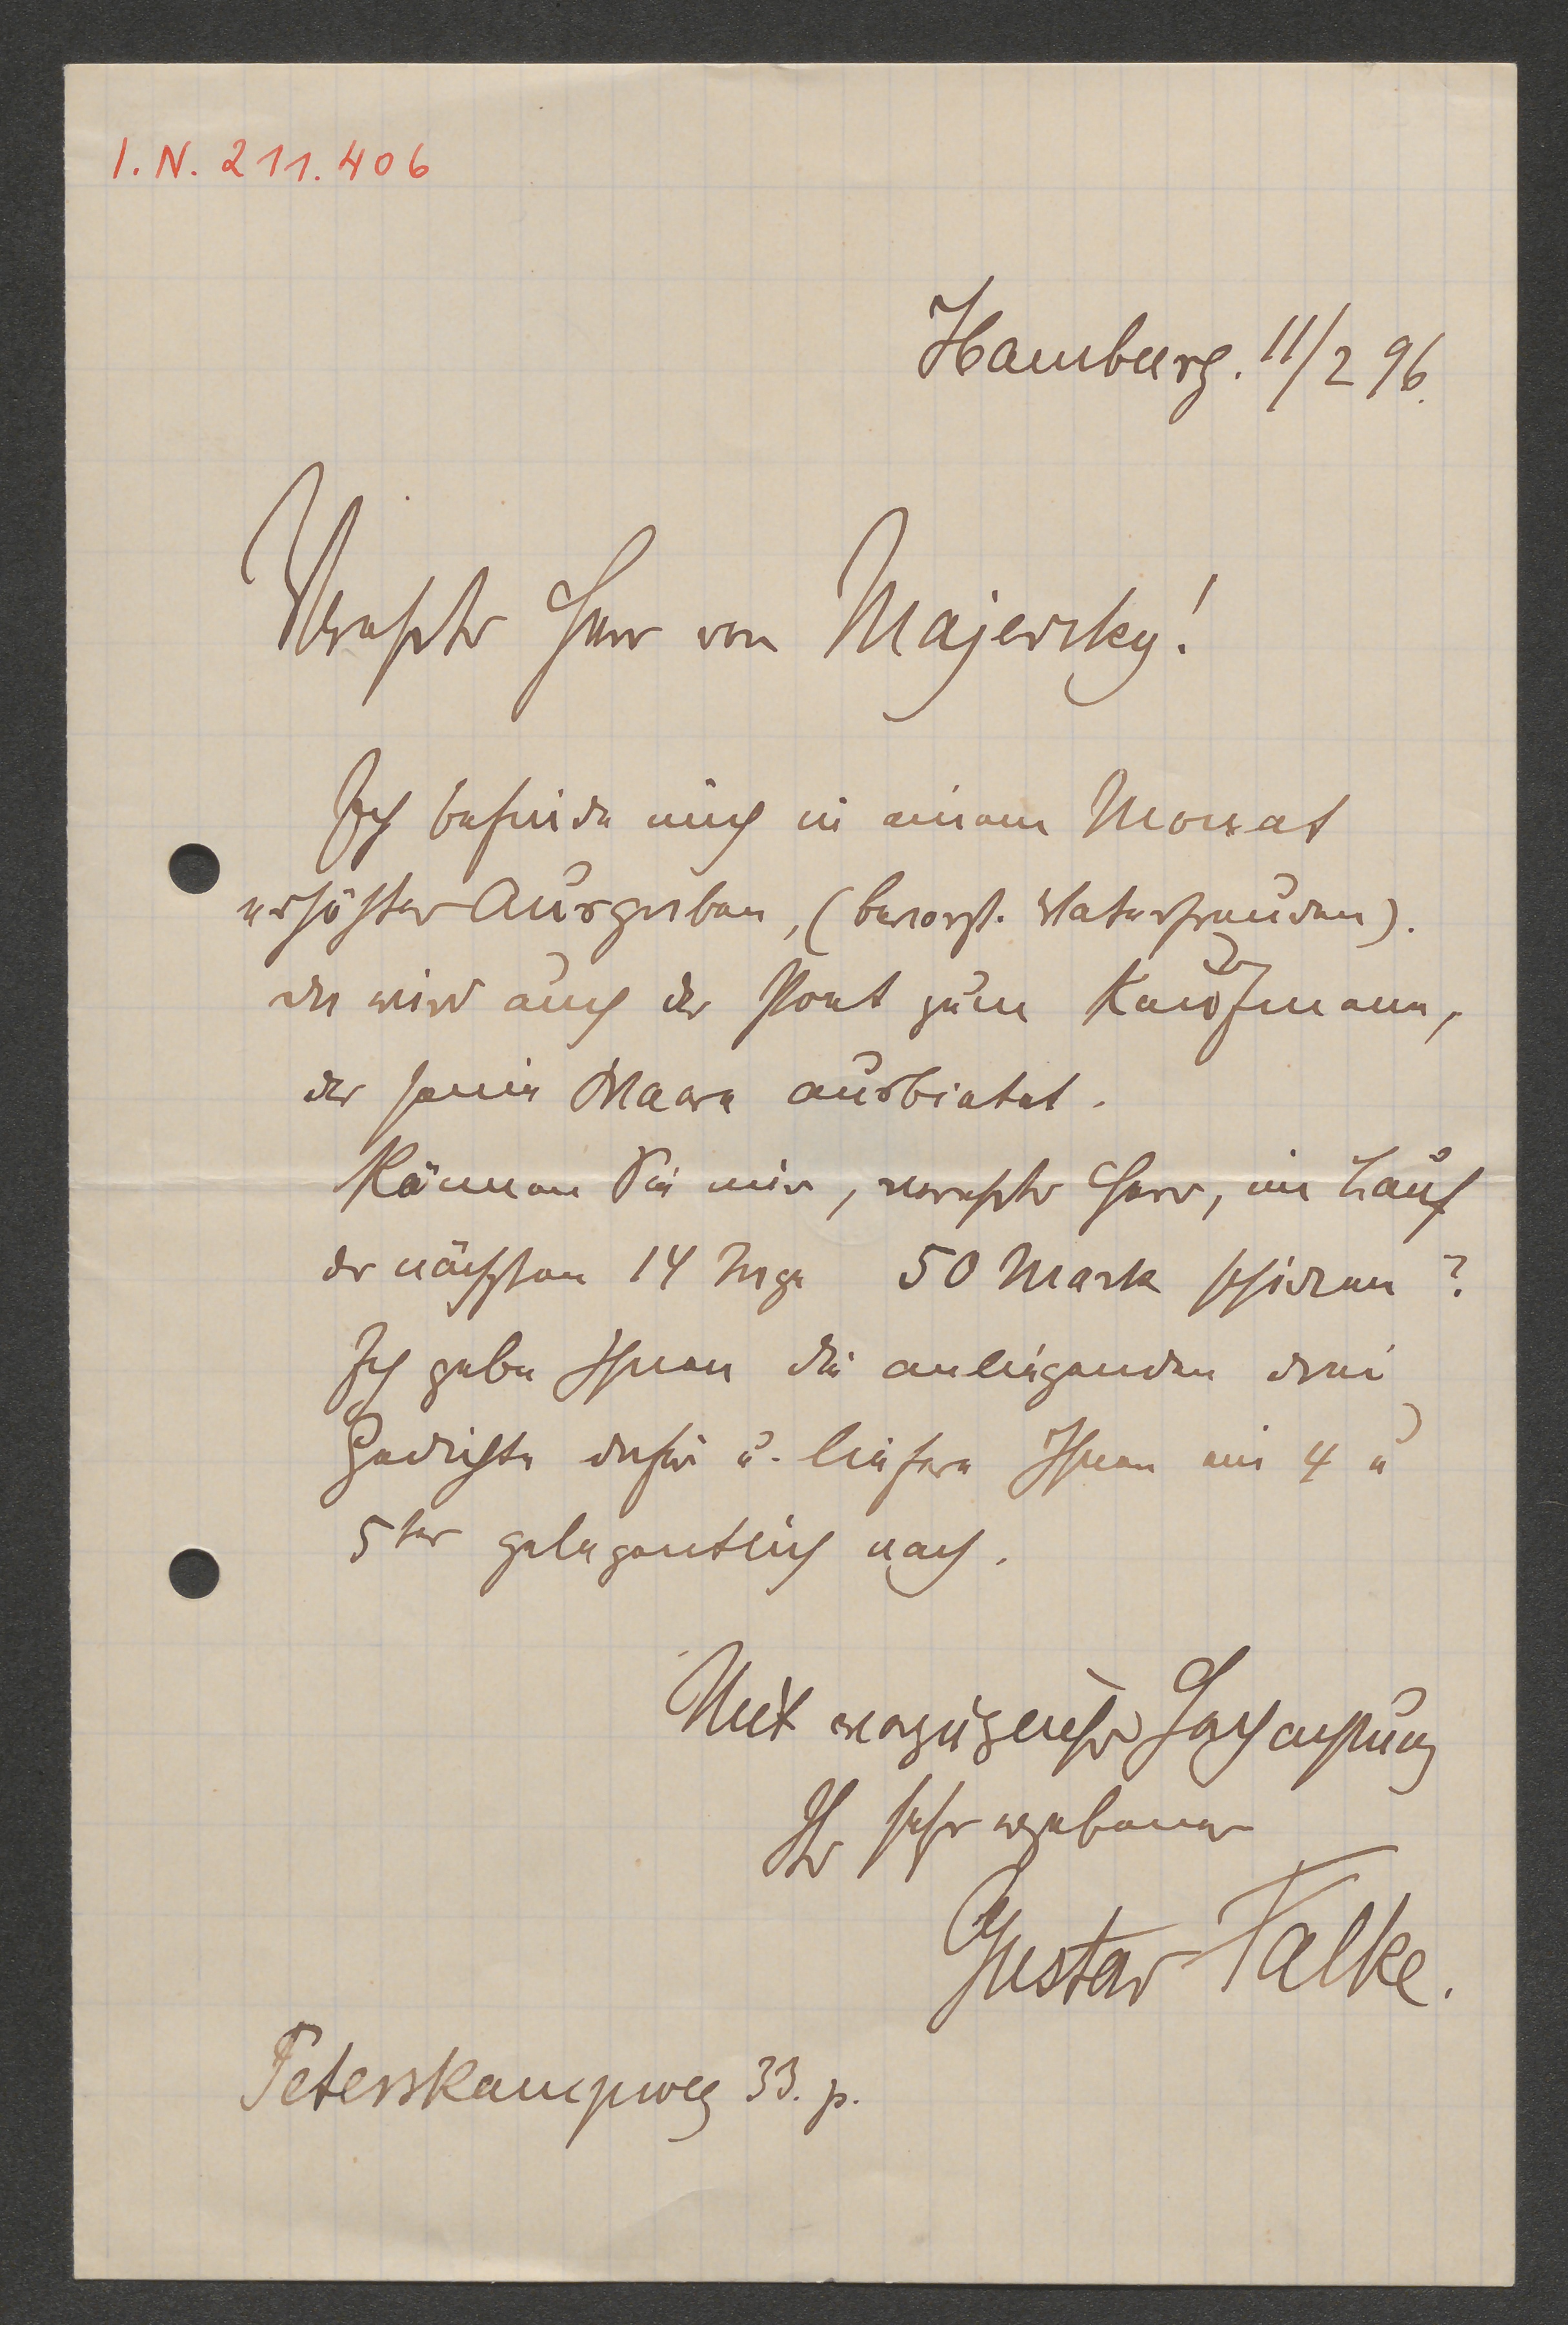 I.N. 211.406
Hamburg. 11/2 96.
Verehrter Herr von Majersky!
Ich befinde mich in einem Monat
erhöhter Ausgaben, (bevorst. Vaterfreuden).
da wird auch der Poet zum Kaufmann,
der seine Waare ausbietet.
Können Sie mir, verehrter Herr, im Lauf
der nächsten 14 Tage 50 Mark schicken?
Ich gebe Ihnen die anliegenden drei
Gedichte dafür u. liefere Ihnen ein 4 u
5ter gelegentlich nach.
Mit vorzüglicher Hochachtung
Ihr sehr ergebener
Gustav Falke.
Peterskampweg 33. p.